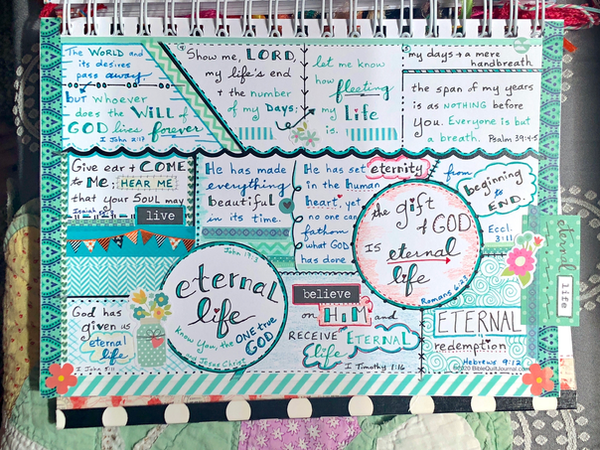 The WORLD and
its desires
pass away
but whoever
does the WILL of
GOD lives forever
1 John 2:17
Show me, LORD,
my life's end
+ the number
of my DAYS;
let me know
how fleeting
my Life
is.
my days + a mere
handbreath
the span of my years
is as NOTHING before
you. Everyone is but
a breath. Psalm 39:4-5
Give ear + COME
to Me; HEAR ME
that your SOUL may
live
He has made
everything
beautiful
in its time.
He has set eternity
in the human
heart, yet
no one can
fathom
what GOD
has done
from
beginning
to
END.
Eccl.
3:11
the gift
of GOD
IS eternal
life
Romans 6:23
eternal
life
John 17:3
eternal
life
know you, the ONE true
GOD
and Jesus Christ
God has
given us
eternal
life
1 John 5:11
believe
on HIM and
RECEIVE ETERNAL
life
1 Timothy 1:16
ETERNAL
redemption
Hebrews 9:12
©2020 BibleQuiltJournal.com